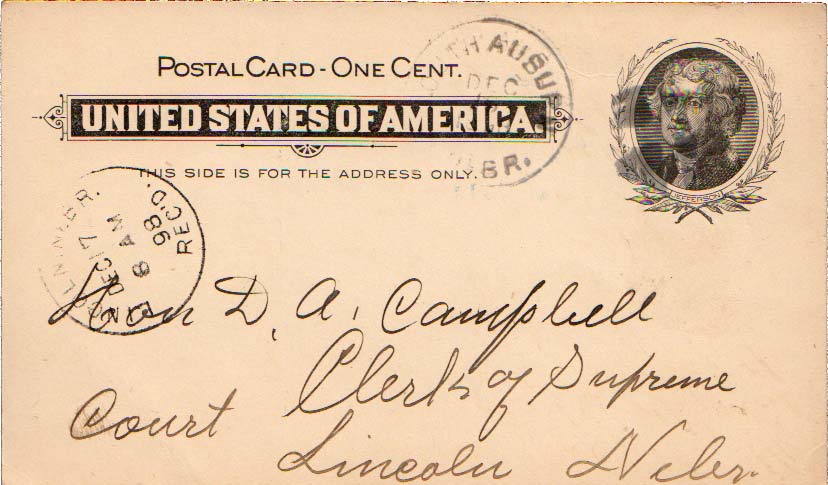 POSTAL CARD - ONE CENT.
UNITED STATES OF AMERICA.
THIS SIDE IS FOR THE ADDRESS ONLY.
JEFFERSON
TH AUBU
DEC
BR.
LINCOLN, NEBR.
DEC 17
8 AM
98
REC'D.
Hon D. A. Campbell
Clerk of Supreme
Court
Lincoln Nebr.